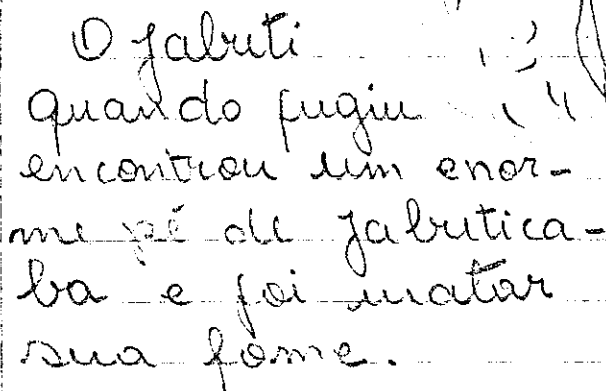 O jabuti
quando fugiu
encontrou um enor-
me pé de jabutica-
ba e foi matar
sua fome.